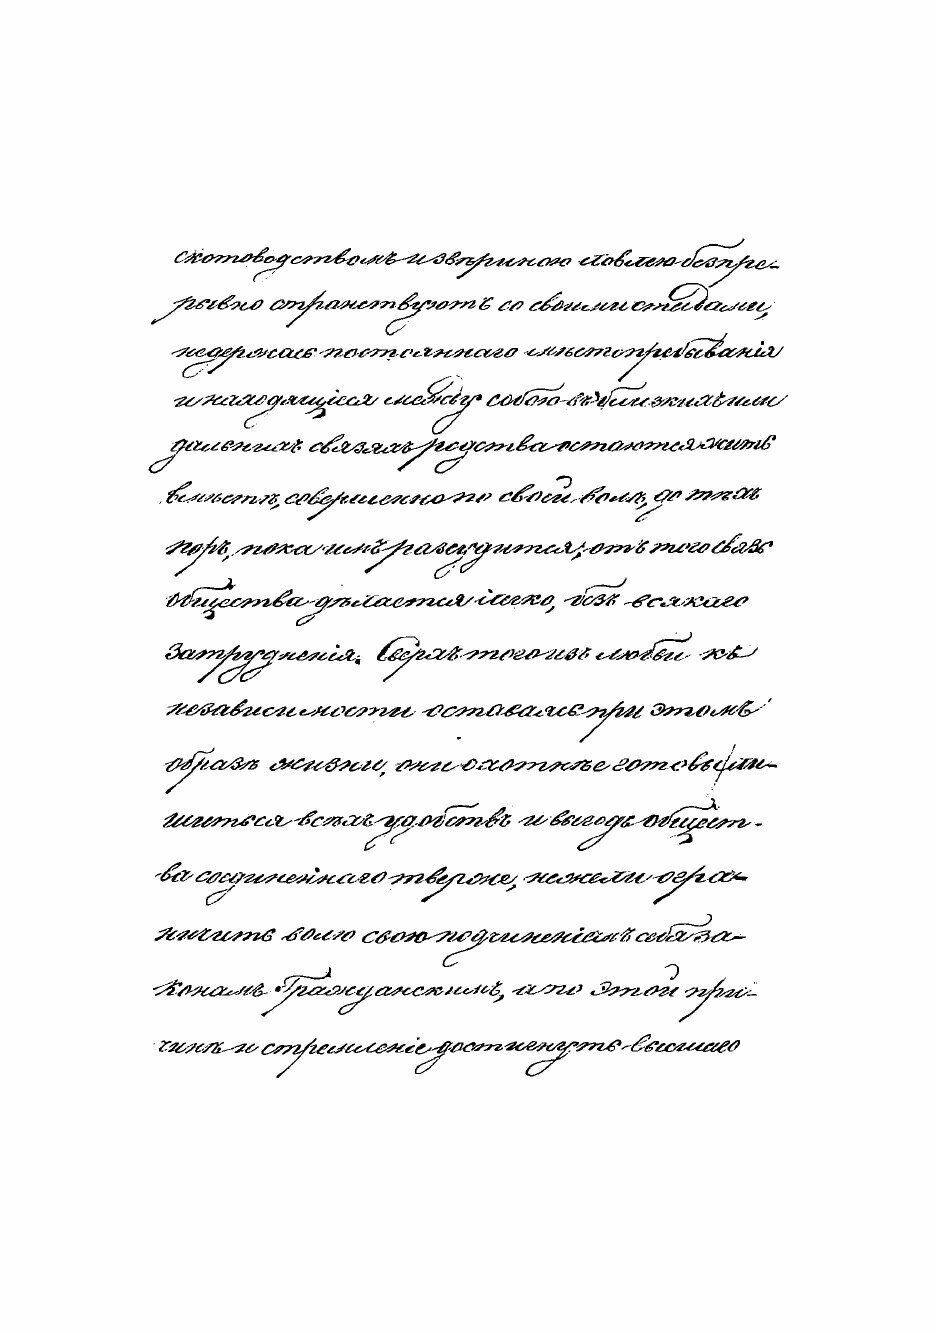 скотоводствомъ и звѣриною ловлею безпре-
рывно странствуютъ со своими стадами,
недержась постояннаго мѣстопребыванія
и находящіеся между собою въ близкихъ или
дальнихъ связяхъ родства остаются жить
вмѣстѣ, совершенно по своей волѣ, до тѣхъ
поръ, пока имъ разсудится; отъ того связь
общества дѣлается легко, безъ всякаго
затрудненія. Сверхъ того изъ любви къ
независимости оставаясь при этомъ
образѣ жизни, они охотнѣе готовы ли-
шиться всѣхъ удобствъ и выгодъ общест-
ва соединеннаго тверже, нежели огра-
ничить волю свою подчиненіемъ себя за-
конамъ Гражданскимъ, а по этой при-
чинѣ и стремленіе достигнуть высшаго